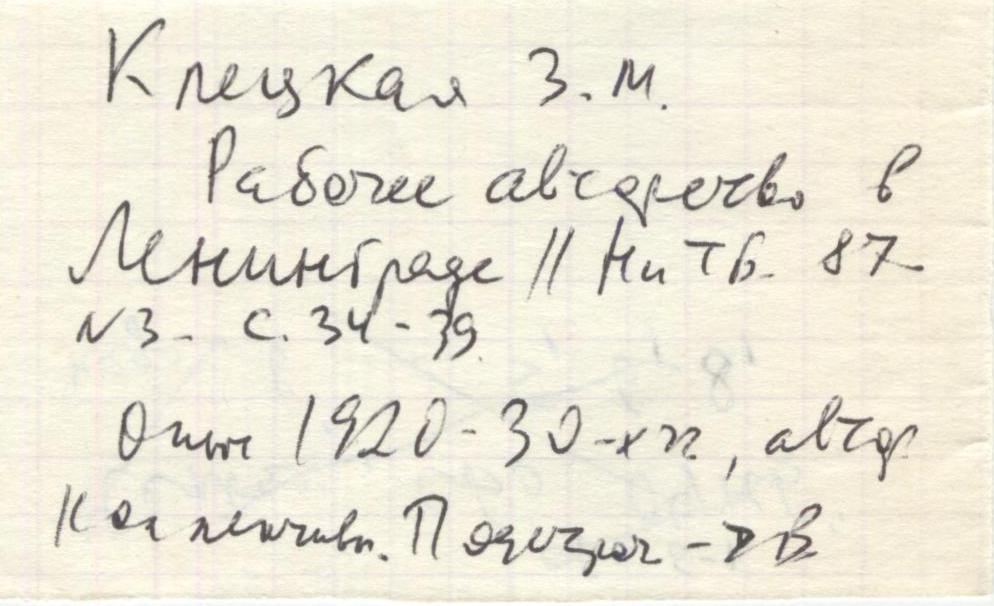 Клецкая З. М.
Рабочее авторство в
Ленинграде // НиТБ. 87
N3 - С. 34-39.
Опыт 1920-30-х гг, автор
коллективн. - В